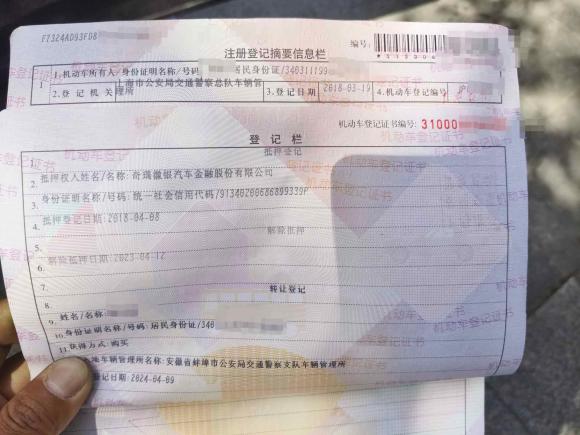 F7324AD93FD8
编号:
注册登记摘要信息栏
1 1.机动车所有人/身份证明名称/号码 居民身份证/340311199
2.登记机关 上海市公安局交通警察总队车辆管理所 3.登记日期 2018-03-19 4.机动车登记编号
机动车登记证书编号: 31000
登记栏
1 抵押登记
2 抵押权人姓名/名称:奇瑞徽银汽车金融股份有限公司
3 身份证明名称/号码:统一社会信用代码/91340200686899339P
4 抵押登记日期:2018-04-08
5 解除抵押
6 解除抵押日期:2023-04-12
7 转让登记
8
9. 姓名/名称:
10. 身份证明名称/号码:居民身份证/340
11. 获得方式:购买
车辆管理所名称:安徽省蚌埠市公安局交通警察支队车辆管理所
登记日期:2024-04-09